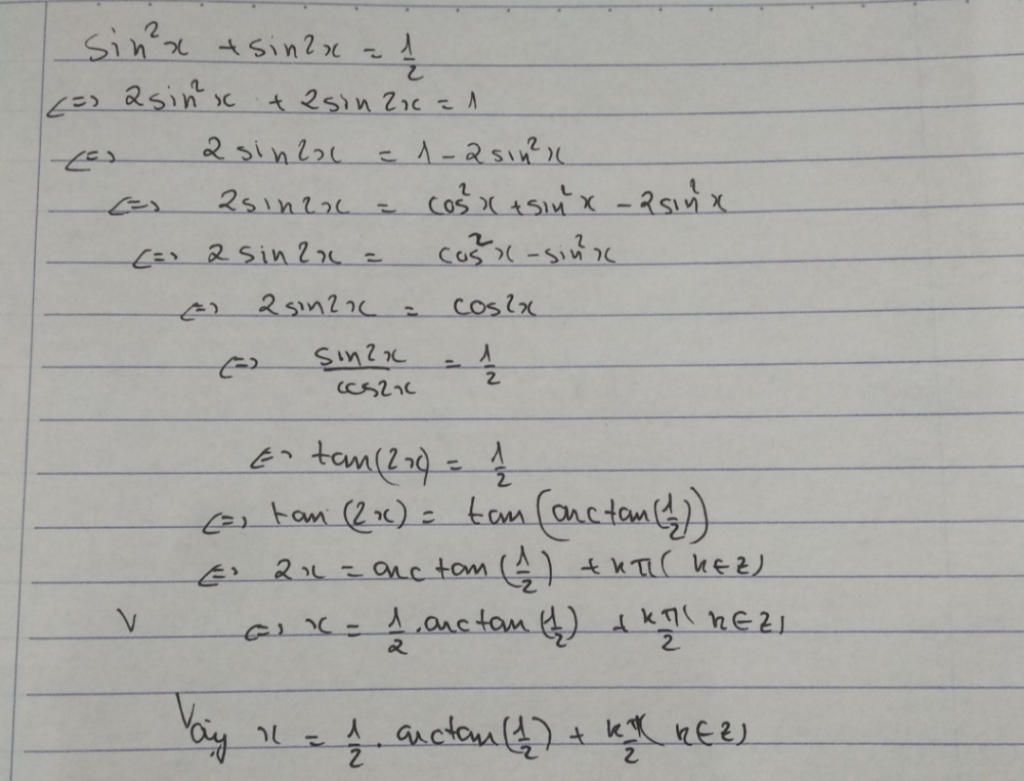 sin²x + sin2x = 1/2
<=> 2sin²x + 2sin2x = 1
<=> 2sin2x = 1 - 2sin²x
<=> 2sin2x = cos²x + sin²x - 2sin²x
<=> 2sin2x = cos²x - sin²x
<=> 2sin2x = cos2x
<=> sin2x/cos2x = 1/2
<=> tan(2x) = 1/2
<=> tan(2x) = tan(arctan(1/2))
<=> 2x = arctan(1/2) + kπ (k∈Z)
V <=> x = 1/2 . arctan(1/2) + kπ/2 (k∈Z)
Vậy x = 1/2 . arctan(1/2) + kπ/2 (k∈Z)